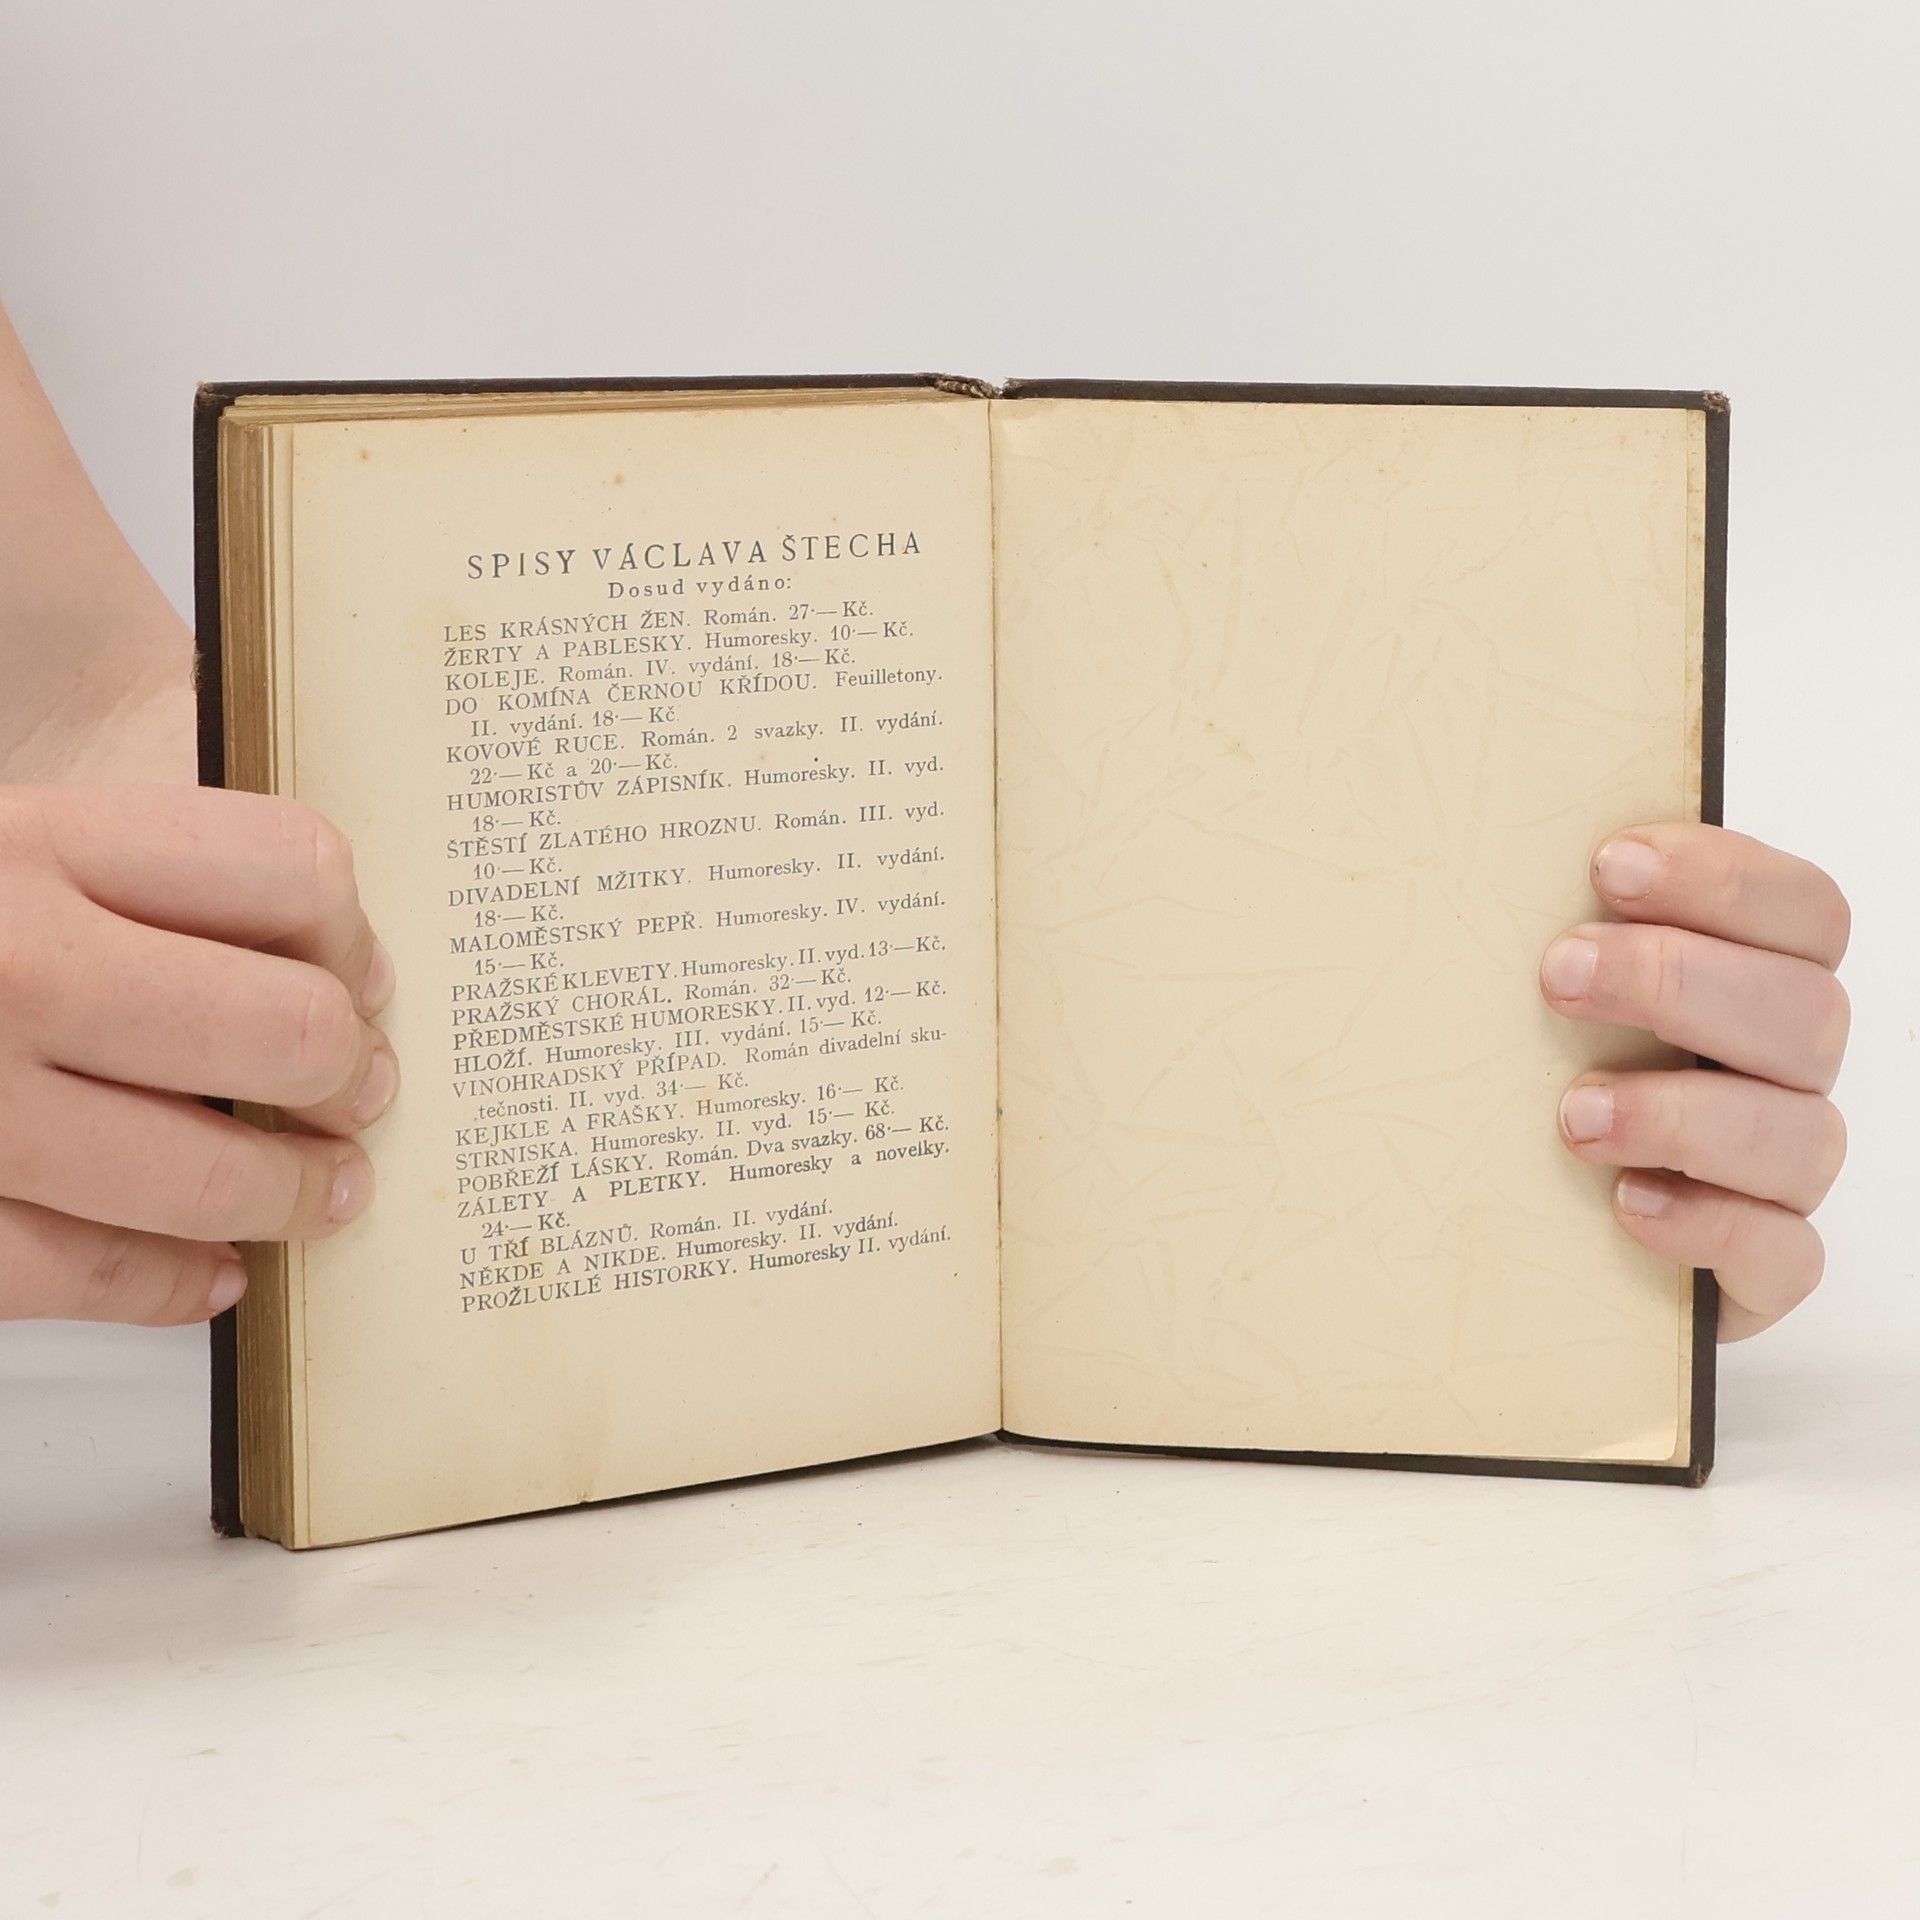 SPISY VÁCLAVA ŠTECHA
Dosud vydáno:
LES KRÁSNÝCH ŽEN. Román. 27·— Kč.
ŽERTY A PABLESKY. Humoresky. 10·— Kč.
KOLEJE. Román. IV. vydání. 18·— Kč.
DO KOMÍNA ČERNOU KŘÍDOU. Feuilletony.
II. vydání. 18·— Kč.
KOVOVÉ RUCE. Román. 2 svazky. II. vydání.
22·— Kč a 20·— Kč.
HUMORISTŮV ZÁPISNÍK. Humoresky. II. vyd.
18·— Kč.
ŠTĚSTÍ ZLATÉHO HROZNU. Román. III. vyd.
10·— Kč.
DIVADELNÍ MŽITKY. Humoresky. II. vydání.
18·— Kč.
MALOMĚSTSKÝ PEPŘ. Humoresky. IV. vydání.
15·— Kč.
PRAŽSKÉ KLEVETY. Humoresky. II. vyd. 13·— Kč.
PRAŽSKÝ CHORÁL. Román. 32·— Kč.
PŘEDMĚSTSKÉ HUMORESKY. II. vyd. 12·— Kč.
HLOŽÍ. Humoresky. III. vydání. 15·— Kč.
VINOHRADSKÝ PŘÍPAD. Román divadelní sku-
tečnosti. II. vyd. 34·— Kč.
KEJKLE A FRAŠKY. Humoresky. 16·— Kč.
STRNISKA. Humoresky. II. vyd. 15·— Kč.
POBŘEŽÍ LÁSKY. Román. Dva svazky. 68·— Kč.
ZÁLETY A PLETKY. Humoresky a novelky.
24·— Kč.
U TŘÍ BLÁZNŮ. Román. II. vydání.
NĚKDE A NIKDE. Humoresky. II. vydání.
PROŽLUKLÉ HISTORKY. Humoresky II. vydání.